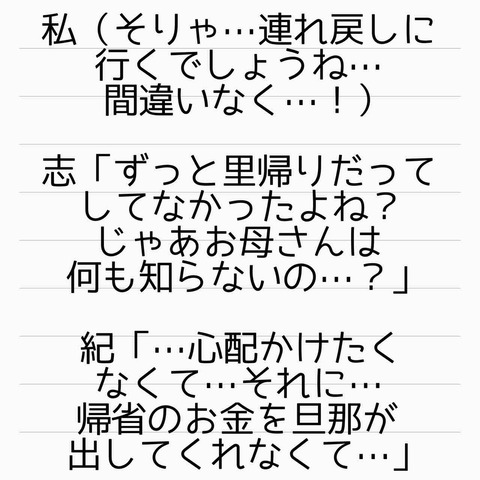 私（そりゃ…連れ戻しに
行くでしょうね…
間違いなく…！）
志「ずっと里帰りだって
してなかったよね？
じゃあお母さんは
何も知らないの…？」
紀「…心配かけたく
なくて…それに…
帰省のお金を旦那が
出してくれなくて…」